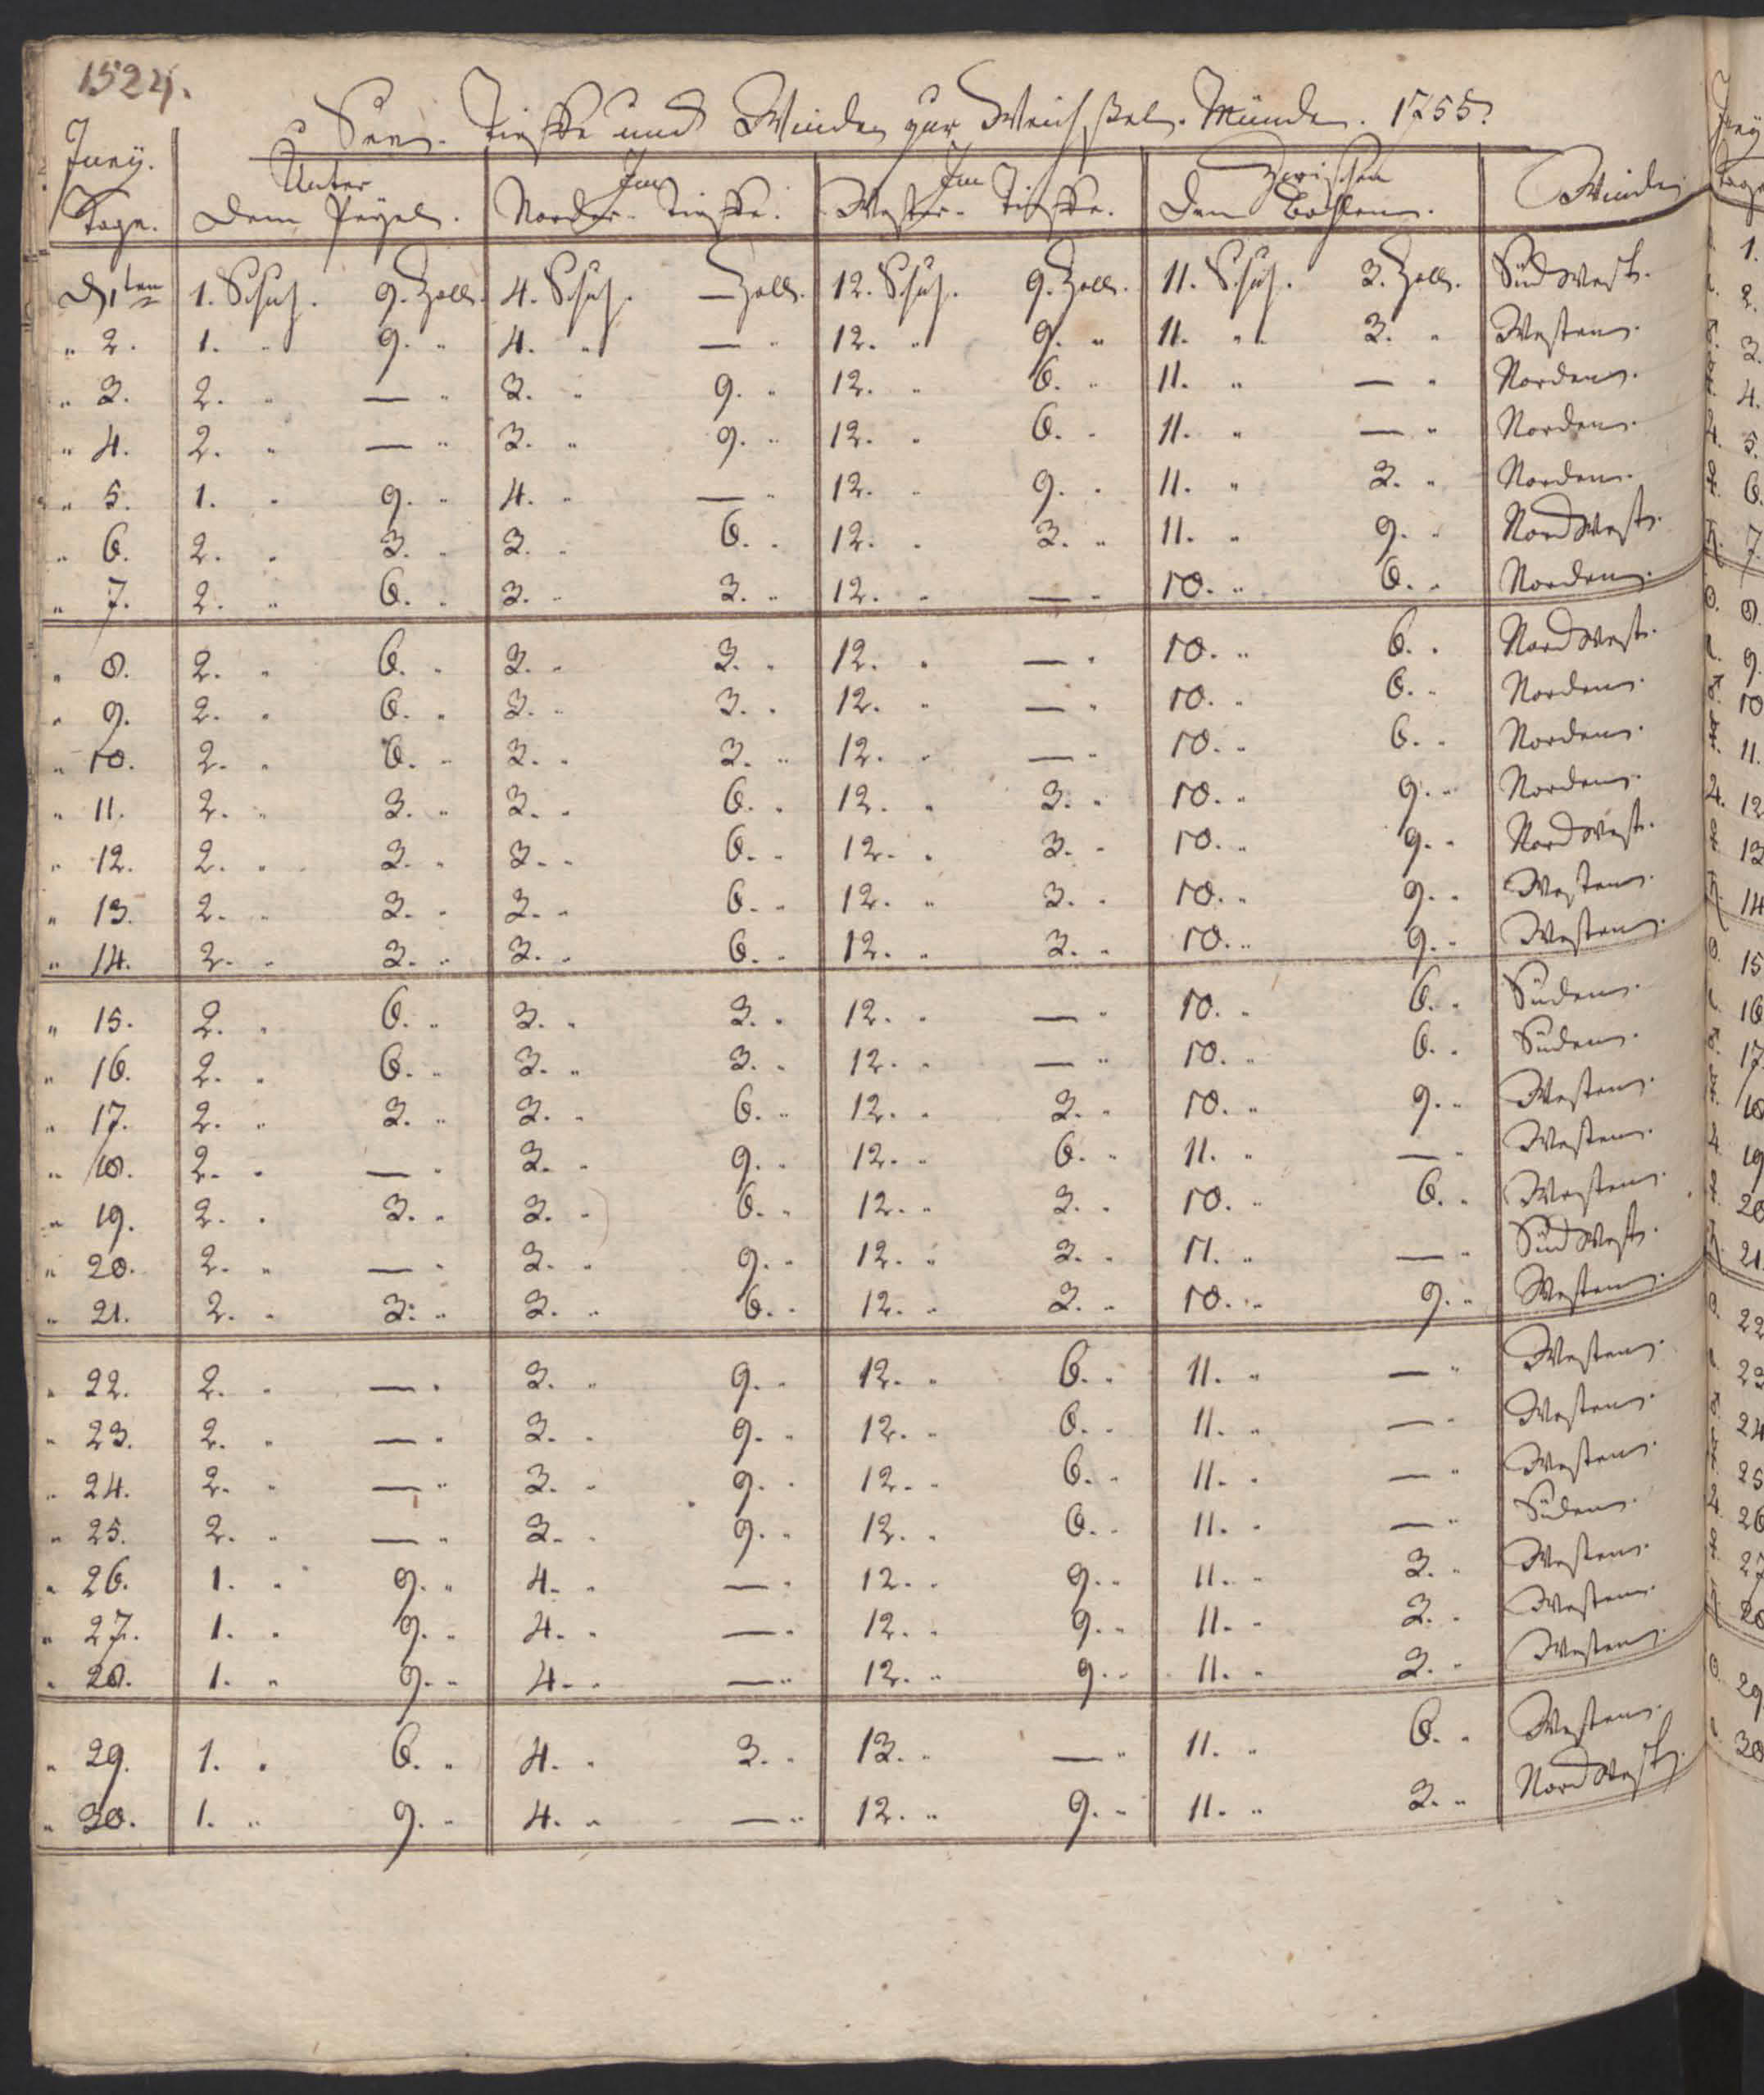 1524.
Seen-Tieffe und Winden zur Weichselmünde. 1755.
Juny. Tage. | Unter dem Peyel. | Im Norder-Tieffe. | Im Wester-Tieffe. | Zwischen den Bohlen. | Winde
D 1ten 1. Schuh. 9. Zoll. 4. Schuh. — Zoll. 12. Schuh. 9. Zoll. 11. Schuh. 3. Zoll. Süd West.
" 2. 1. " 9. " 4. " — " 12. " 9. " 11. " 3. " Westen.
" 3. 2. " — " 3. " 9. " 12. " 6. " 11. " — " Norden.
" 4. 2. " — " 3. " 9. " 12. " 6. " 11. " — " Norden.
" 5. 1. " 9. " 4. " — " 12. " 9. " 11. " 3. " Norden.
" 6. 2. " 3. " 3. " 6. " 12. " 3. " 11. " 9. " Nord West.
" 7. 2. " 6. " 3. " 3. " 12. " — " 10. " 6. " Norden.
" 8. 2. " 6. " 3. " 3. " 12. " — " 10. " 6. " Nord West.
" 9. 2. " 6. " 3. " 3. " 12. " — " 10. " 6. " Norden.
" 10. 2. " 6. " 3. " 3. " 12. " — " 10. " 6. " Norden.
" 11. 2. " 3. " 3. " 6. " 12. " 3. " 10. " 9. " Norden.
" 12. 2. " 3. " 3. " 6. " 12. " 3. " 10. " 9. " Nord West.
" 13. 2. " 3. " 3. " 6. " 12. " 3. " 10. " 9. " Westen.
" 14. 2. " 3. " 3. " 6. " 12. " 3. " 10. " 9. " Westen.
" 15. 2. " 6. " 3. " 3. " 12. " — " 10. " 6. " Süden.
" 16. 2. " 6. " 3. " 3. " 12. " — " 10. " 6. " Süden.
" 17. 2. " 3. " 3. " 6. " 12. " 3. " 10. " 9. " Westen.
" 18. 2. " — " 3. " 9. " 12. " 6. " 11. " — " Westen.
" 19. 2. " 3. " 3. " 6. " 12. " 3. " 10. " 6. " Westen.
" 20. 2. " — " 3. " 9. " 12. " 3. " 11. " — " Süd West.
" 21. 2. " 3. " 3. " 6. " 12. " 3. " 10. " 9. " Westen.
" 22. 2. " — " 3. " 9. " 12. " 6. " 11. " — " Westen.
" 23. 2. " — " 3. " 9. " 12. " 6. " 11. " — " Westen.
" 24. 2. " — " 3. " 9. " 12. " 6. " 11. " — " Westen.
" 25. 2. " — " 3. " 9. " 12. " 6. " 11. " — " Süden.
" 26. 1. " 9. " 4. " — " 12. " 9. " 11. " 3. " Westen.
" 27. 1. " 9. " 4. " — " 12. " 9. " 11. " 3. " Westen.
" 28. 1. " 9. " 4. " — " 12. " 9. " 11. " 3. " Westen.
" 29. 1. " 6. " 4. " 3. " 13. " — " 11. " 6. " Westen.
" 30. 1. " 9. " 4. " — " 12. " 9. " 11. " 3. " Nord West.
1.
2.
3.
4.
5.
6.
7.
8.
9.
10
11.
12
13
14
15
16
17
18
19
20
21.
22
23
24
25
26
27
28
29
30